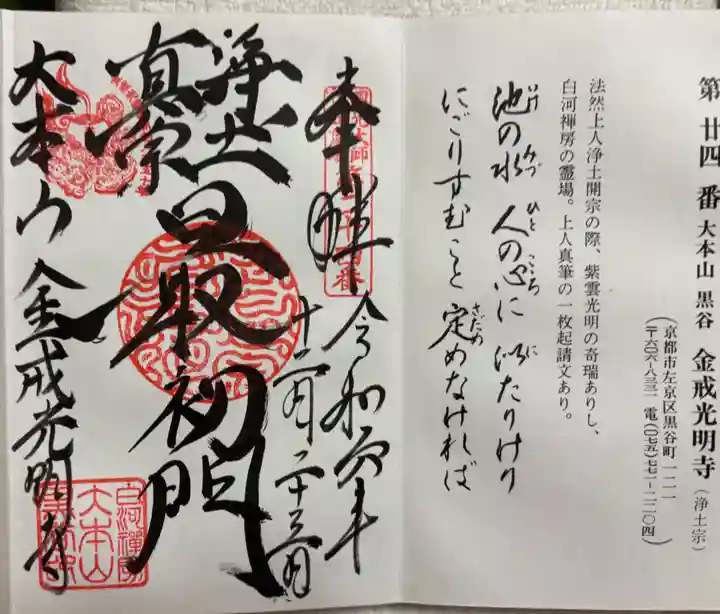 第廿四番 大本山 黒谷 金戒光明寺(浄土宗)
(京都市左京区黒谷町一二一
〒六〇六-八三三一 電(〇七五)七七一-二二〇四)
法然上人浄土開宗の際、紫雲光明の奇瑞ありし、
白河禅房の霊場。上人真筆の一枚起請文あり。
池の水 人の心に 似たりけり
いけ みづ ひと こころ に
にごりすむこと 定めなければ
さだめ
奉拝
令和六年
十二月二十三日
浄土
真宗
最初門
大本山 金戒光明寺
白河禅房
大本山